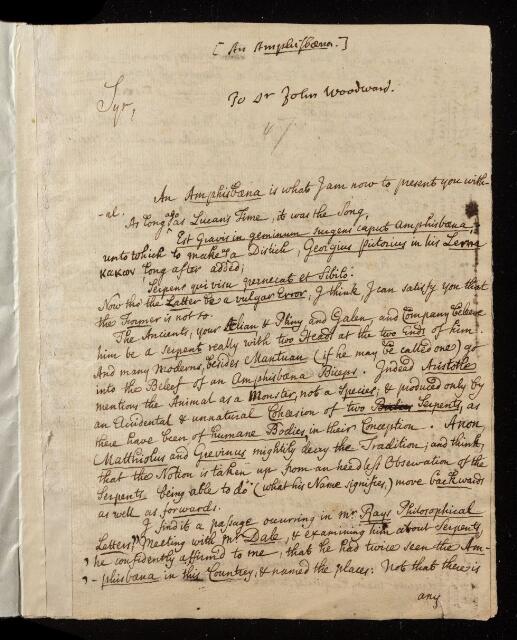 [ An Amphisbæna. ]
To Dr John Woodward.
Syr,
An Amphisbæna is what I am now to present you with-
-al.
As long ago as Lucans Time, it was the Song,
Est Gravis in geminum surgens caput Amphisbæna,
unto which to make a Distich, Georgius Pictorius in his Lerna
κακων long after added;
Serpens qui visu necat et Sibilo.
Now tho' the Latter be a vulgar Error, I think I can satisfy you that
the Former is not so.
The Ancients, your Ælian & Pliny and Galen, and Company beleeve
him be a Serpent really with two Heads at the two ends of him.
And many Moderns, besides Mantuan (if he may be called one) go
into the Beleef of an Amphisbæna Biceps. Indeed Aristotle
mentions the Animal as a Monster, not a Species, & produced only by
an Accidental & unnatural Cohæsion of two Bodies Serpents, as
there have been of humane Bodies, in their Conception. Anon,
Matthiolus and Grevinus mightily decry the Tradition; and think,
that the Notion is taken up from an needless Observation of the
Serpents being able to do (what his Name signifies,) move backwards
as well as forwards.
I find it a passage occurring in Mr. Rays Philosophical
Letters, "Meeting with Mr Dale, & examining him about Serpents,
"he confidently affirmed to me, that he had twice seen the Am-
"-phisbæna in this Countrey, & named the places: Not that there is
any